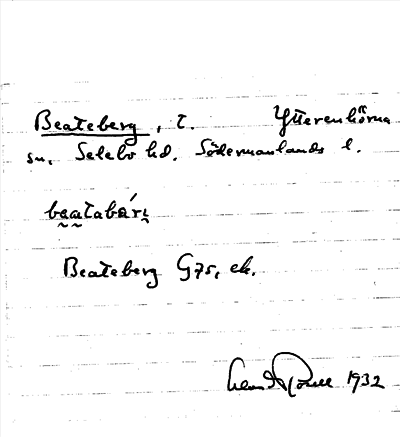 Beateberg, t. Ytterenhörna
sn, Selebo hd, Södermanlands l.
beatabärj
Beateberg G75, ek.
1932